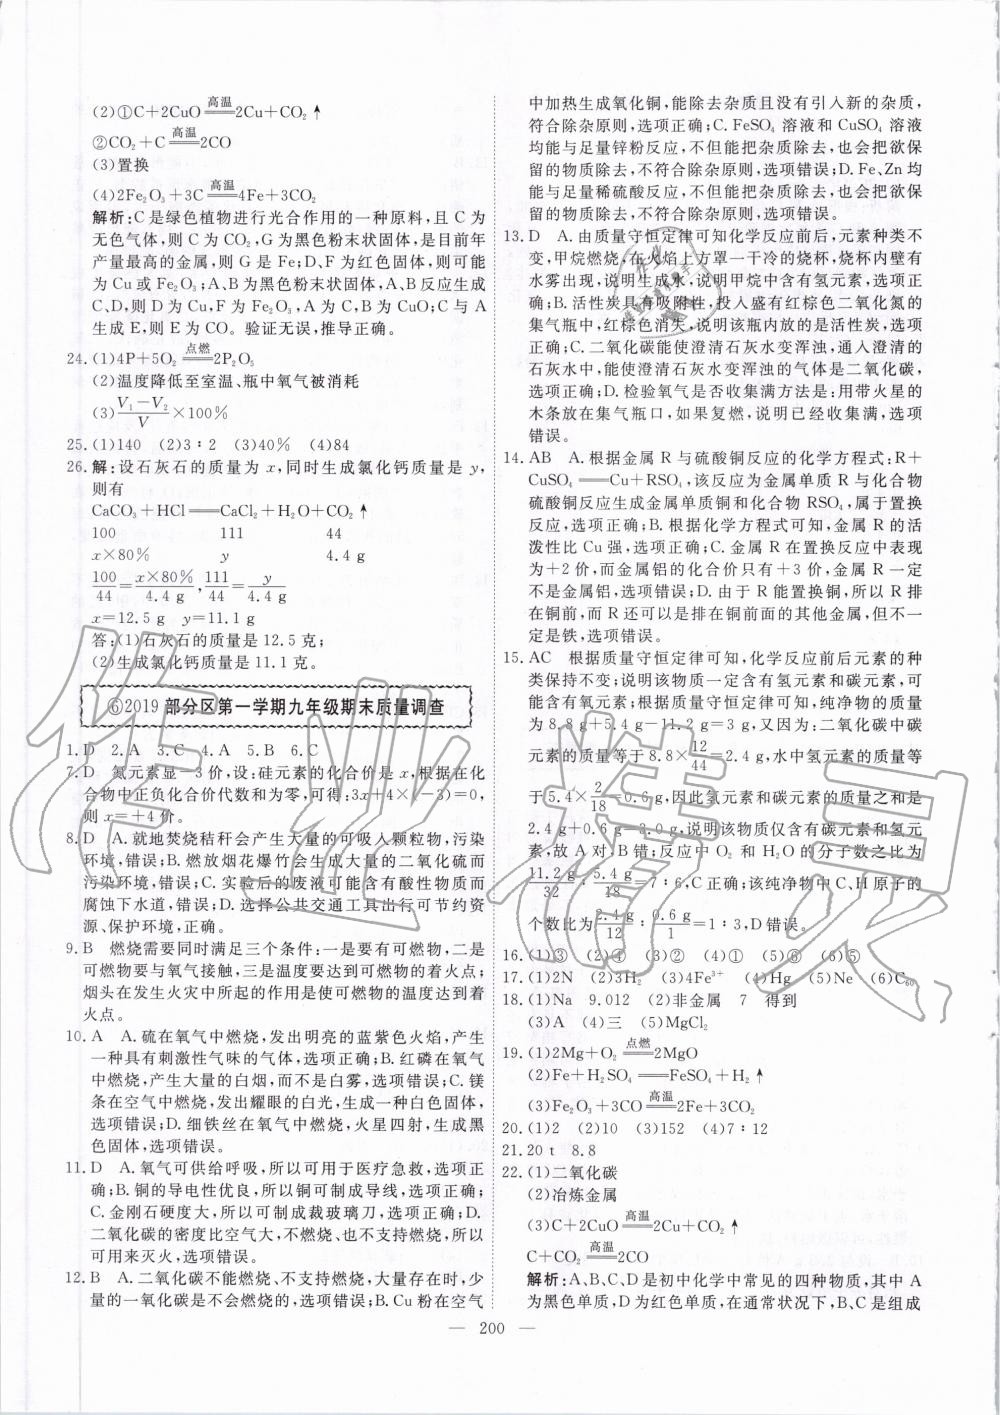 (2)①C+2CuO=高温=2Cu+CO₂↑
②CO₂+C=高温=2CO
(3)置换
(4)2Fe₂O₃+3C=高温=4Fe+3CO₂
解析:C是绿色植物进行光合作用的一种原料,且C为
无色气体,则C为CO₂,G为黑色粉末状固体,是目前年
产量最高的金属,则G是Fe;D、F为红色固体,则可能
为Cu或Fe₂O₃;A、B为黑色粉末状固体,A、B反应生成
C、D,则D为Cu,F为Fe₂O₃,A为C,B为CuO;C与A
生成E,则E为CO。验证无误,推导正确。
24.(1)4P+5O₂=点燃=2P₂O₅
(2)温度降低至室温、瓶中氧气被消耗
(3)(V₁-V₂)/V×100%
25.(1)140 (2)3∶2 (3)40% (4)84
26.解:设石灰石的质量为x,同时生成氯化钙质量是y,
则有
CaCO₃+HCl══CaCl₂+H₂O+CO₂↑
100 111 44
x×80% y 4.4 g
100/44=x×80%/4.4 g,111/44=y/4.4 g
x=12.5 g y=11.1 g
答:(1)石灰石的质量是12.5克;
(2)生成氯化钙质量是11.1克。
⑥2019部分区第一学期九年级期末质量调查
1.D 2.A 3.C 4.A 5.B 6.C
7.D 氮元素显-3价,设:硅元素的化合价是x,根据在化
合物中正负化合价代数和为零,可得:3x+4×(-3)=0,
则x=+4价。
8.D A.就地焚烧秸秆会产生大量的可吸入颗粒物,污染
环境,错误;B.燃放烟花爆竹会生成大量的二氧化硫而
污染环境,错误;C.实验后的废液可能含有酸性物质而
腐蚀下水道,错误;D.选择公共交通工具出行可节约资
源、保护环境,正确。
9.B 燃烧需要同时满足三个条件:一是要有可燃物,二是
可燃物要与氧气接触,三是温度要达到可燃物的着火点;
烟头在发生火灾中所起的作用是使可燃物的温度达到着
火点。
10.A A.硫在氧气中燃烧,发出明亮的蓝紫色火焰,产生
一种具有刺激性气味的气体,选项正确;B.红磷在氧气
中燃烧,产生大量的白烟,而不是白雾,选项错误;C.镁
条在空气中燃烧,发出耀眼的白光,生成一种白色固体,
选项错误;D.细铁丝在氧气中燃烧,火星四射,生成黑
色固体,选项错误。
11.D A.氧气可供给呼吸,所以可用于医疗急救,选项正
确;B.铜的导电性优良,所以铜可制成导线,选项正确;
C.金刚石硬度大,所以可制成裁玻璃刀,选项正确;D.
二氧化碳的密度比空气大,不燃烧、也不支持燃烧,所以
可用来灭火,选项错误。
12.B A.二氧化碳不能燃烧、不支持燃烧,大量存在时,少
量的一氧化碳是不会燃烧的,选项错误;B.Cu粉在空气
中加热生成氧化铜,能除去杂质且没有引入新的杂质,
符合除杂原则,选项正确;C.FeSO₄溶液和CuSO₄溶液
均能与足量锌粉反应,不但能把杂质除去,也会把欲保
留的物质除去,不符合除杂原则,选项错误;D.Fe、Zn均
能与足量稀硫酸反应,不但能把杂质除去,也会把欲保
留的物质除去,不符合除杂原则,选项错误。
13.D A.由质量守恒定律可知化学反应前后,元素种类不
变,甲烷燃烧,在火焰上方罩一干冷的烧杯,烧杯内壁有
水雾出现,说明生成水,说明甲烷中含有氢元素,选项正
确;B.活性炭具有吸附性,投入盛有红棕色二氧化氮的
集气瓶中,红棕色消失,说明该瓶内放的是活性炭,选项
正确;C.二氧化碳能使澄清石灰水变浑浊,通入澄清的
石灰水中,能使澄清石灰水变浑浊的气体是二氧化碳,
选项正确;D.检验氧气是否收集满方法是:用带火星的
木条放在集气瓶口,如果复燃,说明已经收集满,选项
错误。
14.AB A.根据金属R与硫酸铜反应的化学方程式:R+
CuSO₄══Cu+RSO₄,该反应为金属单质R与化合物
硫酸铜反应生成金属单质铜和化合物RSO₄,属于置换
反应,选项正确;B.根据化学方程式可知,金属R的活
泼性比Cu强,选项正确;C.金属R在置换反应中表现
为+2价,而金属铝的化合价只有+3价,金属R一定
不是金属铝,选项错误;D.由于R能置换铜,所以R排
在铜前,而R还可以是排在铜前面的其他金属,但不一
定是铁,选项错误。
15.AC 根据质量守恒定律可知,化学反应前后元素的种
类保持不变;说明该物质一定含有氢元素和碳元素,可
能含有氧元素;根据质量守恒定律可知,该纯净物的质
量为8.8 g+5.4 g-11.2 g=3 g,又因为:二氧化碳中碳
元素的质量等于8.8×12/44=2.4 g,水中氢元素的质量等
于5.4×2/18=0.6 g,因此氢元素和碳元素的质量之和是
2.4 g+0.6 g=3.0 g,说明该物质仅含有碳元素和氢元
素。故A对、B错;反应中O₂和H₂O的分子数之比为
11.2 g/32∶5.4 g/18=7∶6,C正确;该纯净物中C、H原子的
个数比为2.4 g/12∶0.6 g/1=1∶3,D错误。
16.(1)③ (2)④ (3)② (4)① (5)⑥ (6)⑤
17.(1)2N (2)3H₂ (3)Fe³⁺ (4)Hg (5)Ne (6)C₆₀
18.(1)Na 9.012 (2)非金属 7 得到
(3)A (4)三 (5)MgCl₂
19.(1)2Mg+O₂=点燃=2MgO
(2)Fe+H₂SO₄══FeSO₄+H₂↑
(3)Fe₂O₃+3CO=高温=2Fe+3CO₂
20.(1)2 (2)10 (3)152 (4)7∶12
21.20 t 8.8
22.(1)二氧化碳
(2)冶炼金属
(3)C+2CuO=高温=2Cu+CO₂↑
C+CO₂=高温=2CO
解析:A、B、C、D是初中化学中常见的四种物质,其中A
为黑色单质,D为红色单质,在通常状况下,B、C是组成
— 200 —
作业精灵